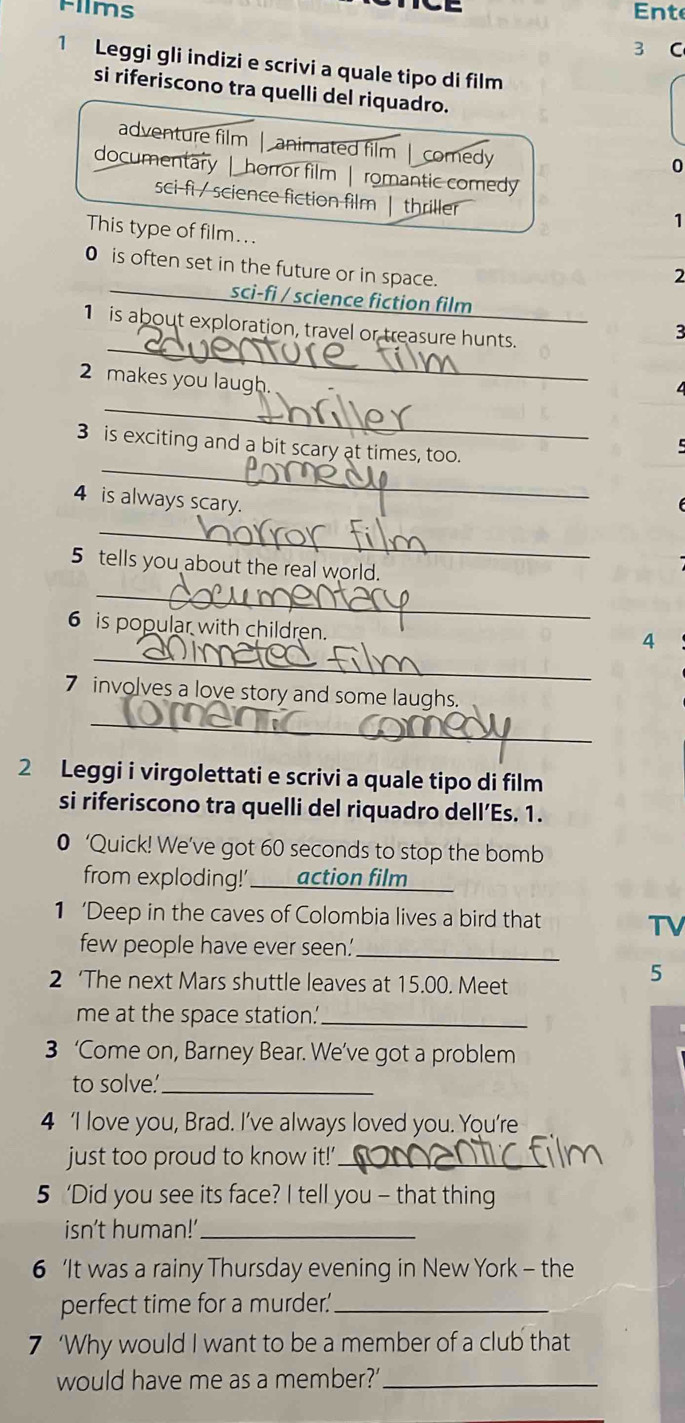 Films
Ente
1 Leggi gli indizi e scrivi a quale tipo di film
si riferiscono tra quelli del riquadro.
3 C
adventure film | animated film | comedy
documentary | horror film | romantic comedy
sci-fi / science fiction film | thriller
0
1
This type of film...
0 is often set in the future or in space.
2
sci-fi / science fiction film
1 is about exploration, travel or treasure hunts.
3
adventure film
2 makes you laugh.
4
thriller
3 is exciting and a bit scary at times, too.
5
comedy
4 is always scary.
horror film
5 tells you about the real world.
documentary
6 is popular with children.
4
animeted film
7 involves a love story and some laughs.
romentic comedy
2 Leggi i virgolettati e scrivi a quale tipo di film
si riferiscono tra quelli del riquadro dell'Es. 1.
0 'Quick! We've got 60 seconds to stop the bomb
from exploding!' action film
1 'Deep in the caves of Colombia lives a bird that
few people have ever seen.'
TV
2 'The next Mars shuttle leaves at 15.00. Meet
me at the space station.'
5
3 'Come on, Barney Bear. We've got a problem
to solve.'
4 'I love you, Brad. I've always loved you. You're
just too proud to know it!' romantic film
5 'Did you see its face? I tell you – that thing
isn't human!'
6 'It was a rainy Thursday evening in New York – the
perfect time for a murder.'
7 'Why would I want to be a member of a club that
would have me as a member?'